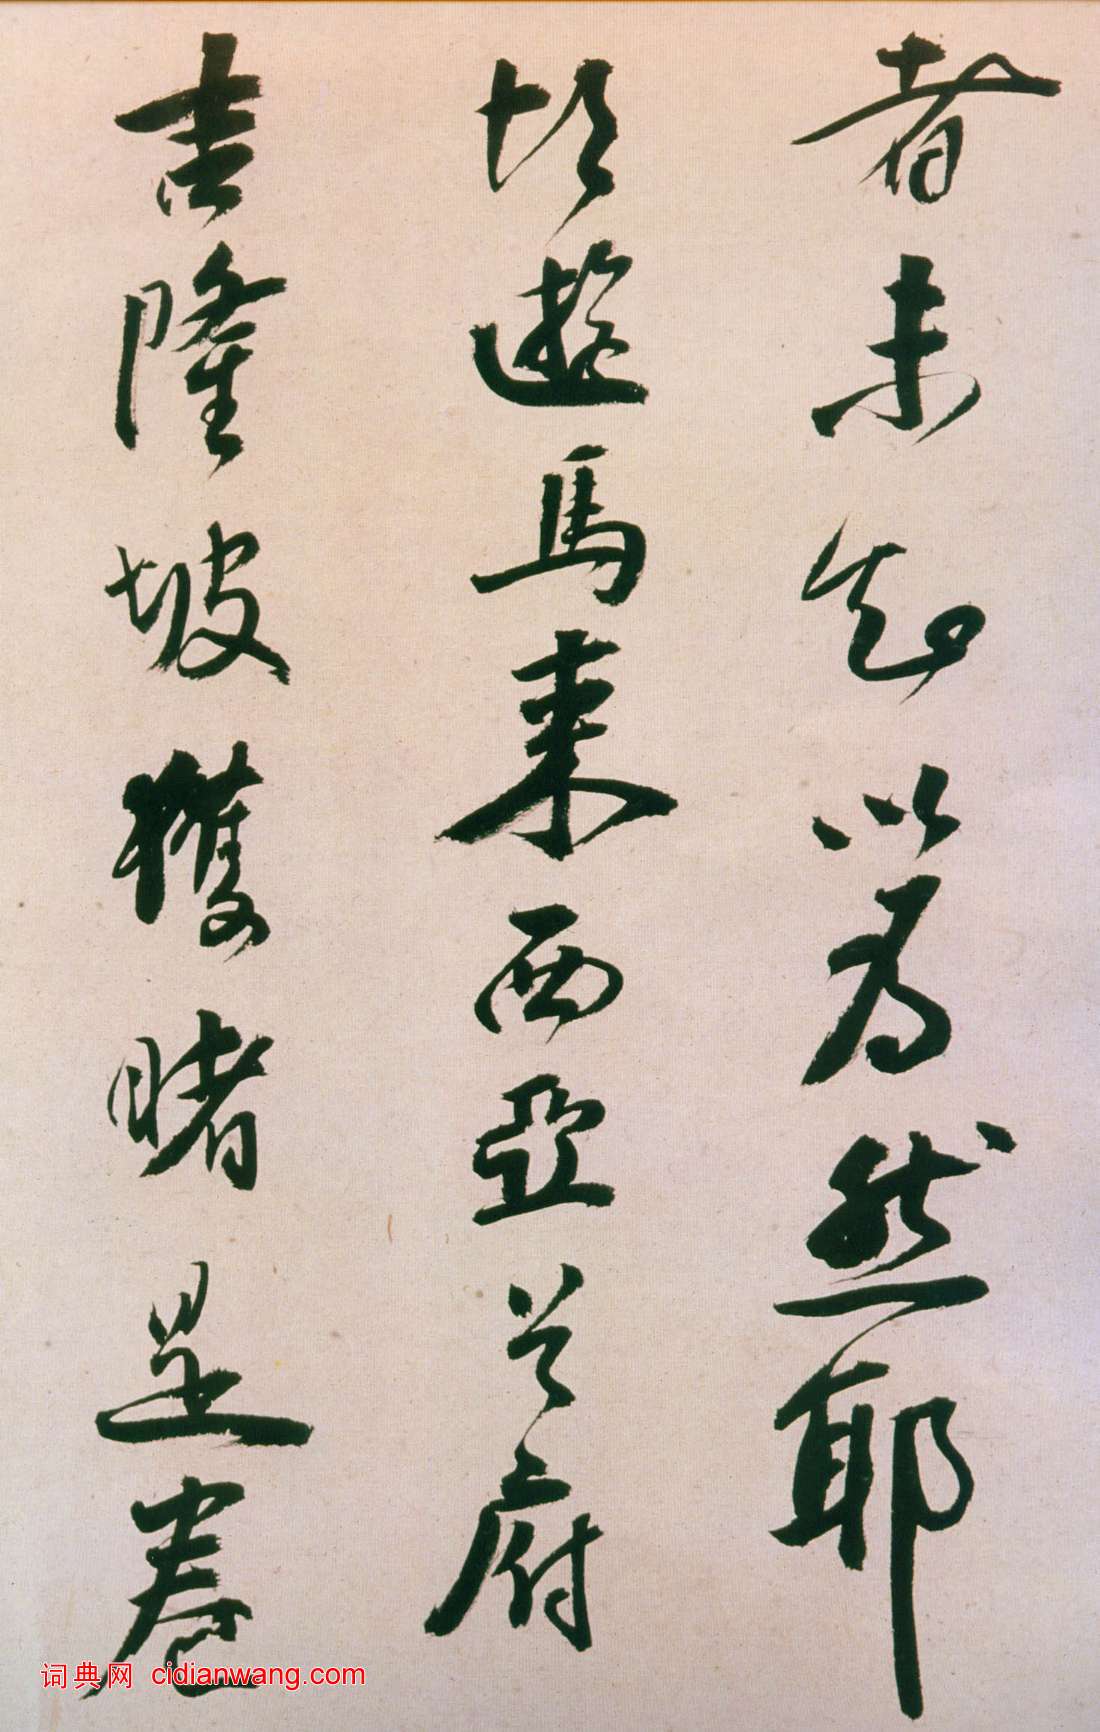 者未知以為然耶
頃遊馬來西亞首府
吉隆坡獲睹是卷
词典网 cidianwang.com